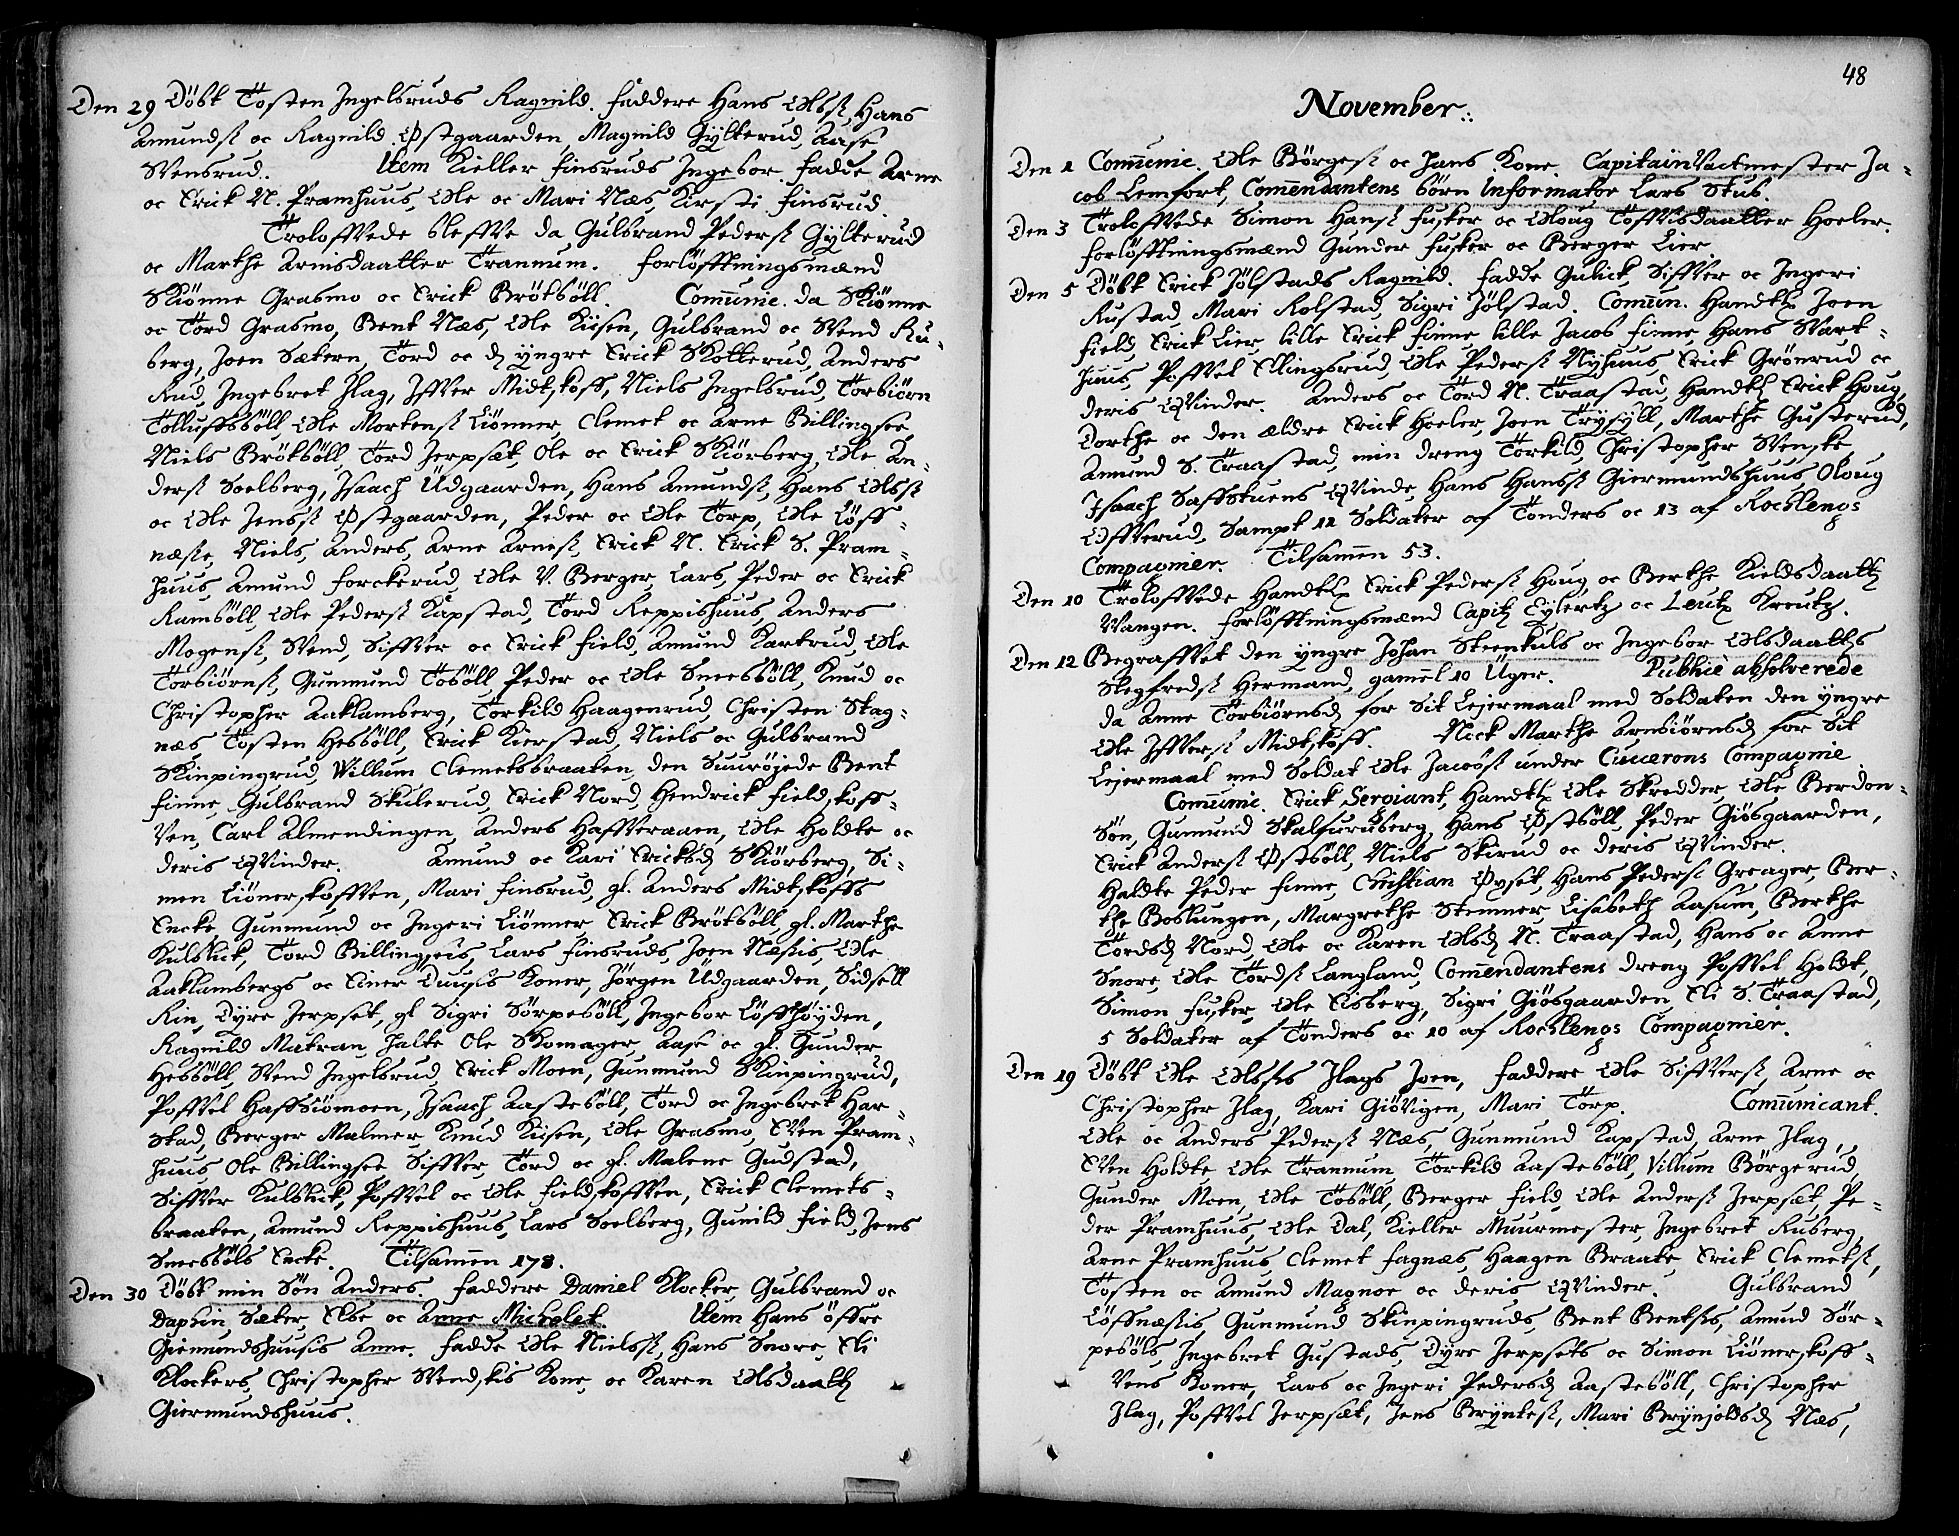 Den 29 Döbt Tosten Ingelsruds Ragnild. Faddere Hans Olss:, Hans
Amunds: oc Ragnild Østgaarden, Magnild Gÿlterud, Aase
Svensrud. Item Kieller Finsruds Ingebor. Fadde: Arne
oc Erick N. Pramhuus, Ole oc Mari Næs, Kirsti Finsrud.
Troloffvede bleffve da Gulbrand Peders: Gÿlterud
oc Marthe Arnisdaatter Trannum. Forlöfftningsmænd
Skiönne Grasmo oc Erick Brötböll. Com̅unic. da Skiönne
oc Tord Grasmo, Bent Næs, Ole Kiisen, Gulbrand oc Svend Ru-
berg, Joen Sætern, Tord oc d. yngre Erick Skotterud, Anders
Rud, Ingebret Ilag, Iffver Midtskoff, Niels Ingelsrud, Torbiörn
Tollufsböll, Ole Mortens: Liönner, Clemet oc Arne Billingsee
Niels Brötböll, Tord Jerpset, Ole oc Erick Skiörberg, Ole An-
ders: Soelberg, Isaach Üdgaarden, Hans Amunds:, Hans Olss:
oc Ole Jenss: Østgaarden, Peder oc Ole Torp, Ole Löff-
næste, Niels, Anders, Arne Arnes:, Erick N. Erick S. Pram-
huus, Amund Forckerud, Ole V. Berger, Lars, Peder oc Erick
Ramböll, Ole Peders: Kapstad, Tord Reppishuus, Anders
Mogens:, Svend, Siffver oc Erick Field, Amund Kartrud, Ole
Torbiörns:, Gunmund Toböll, Peder oc Ole Smesböll, Knud oc
Christopher Aaklamberg, Torkild Haagenrud, Christen Skag-
næs, Tosten Hesböll, Erick Kierstad, Niels oc Gulbrand
Skinpingrud, Villum Clemetsbraaten, den Suuröjede Bent
Finne, Gulbrand Skulerud, Erick Nord, Hendrick Fieldskoff-
ven, Carl Almendingen, Anders Haffveraaen, Ole Holdte oc
deris Qvinder. Amund oc Kari Ericksd: Skiörberg, Si-
men Liönerskoffven, Mari Finsrud, gl. Anders Midtskoffs
Encke Gunmund oc Ingeri Liönner, Erick Brötböll, gl. Marthe
Kulblick, Tord Billingseis, Lars Finsruds, Joen Næsiis, Ole
Aaklambergs oc Einer Duusis Koner, Jörgen Üdgaarden, Sidsell
Rin, Dyre Jerpset, gl Sigri Sörpeböll, Ingebor Löffhöÿden,
Ragnild Matran, halte Ole Skomager, Aase oc gl. Gunder
Hesböll, Svend Ingelsrud, Erick Moen, Gunmund Skinpingrud,
Poffvel Haffsiömoen, Isaach Aasteböll, Tord oc Ingebret Har-
stad, Berger Malmer, Knud Kiisen, Ole Grasmo, Even Pram-
huus, Ole Billingsee, Siffver, Tord oc gl. Malene Gudstad,
Siffver Kulblick, Poffvel oc Ole Fieldskoffven, Erick Clemets-
braaten, Amund Reppishuus, Lars Soelberg, Gunild Field, Jens
Smesböls Encke. Tilsam̅en 178.
Den 30 Döbt min Sön Anders. Faddere Daniel Klocker, Gulbrand oc
Daphin Sæter, Else oc Anne Michelet. Item Hans öffre
Giermundshuusis Anne. Fadde: Ole Nielss:, Hans Snore, Eli
Klockers, Christopher Svendskis Kone, oc Karen Olsdaatt:
Giermundshuus.
48
November.
Den 1 Com̅unic. Ole Börges: oc Hans Kone. Capitain Vactmester Ja-
cob Lemfort, Com̅endantens börn Informator Lars Stub.
Den 3 Troloffvede Simon Hans: Fusker oc Oloug Toffvisdaatter Hoeler.
Forlöfftningsmænd Gunder Fusker oc Berger Lier
Den 5 Döbt Erick Jölstads Ragnild. Fadde: Gulick, Siffver oc Ingeri
Rustad, Mari Rolstad, Sigri Jölstad. Com̅un. Handtz: Joen
Field, Erick Lier, lille Erick Finne, lille Jacob Finne, Hans Svart-
huus, Poffvel Ellingsrud, Ole Peders: Nÿhuus, Erick Grönrud oc
deris Qvinder. Anders oc Tord N. Traastad, Handtz: Erick Houg,
Dorthe oc den ældre Erick Hoeler, Joen Trÿsÿll, Marthe Gusterud,
Amund S. Traastad, min dreng Torkild, Christopher Svenske
Isaach Saffstuens Qvinde, Hans Hanss: Giermundshuus Oloug
Offverud, Sampt 12 Soldater af Tönders oc 13 af Rochlengs
Compagnier. Tilsam̅en 53.
Den 10 Troloffvede Handtz: Erick Peders: Houg oc Berthe Kieldsdaatt:
Vangen. Forlöfftningsmænd Capit: Eÿlertz oc Leut: Kreutz.
Den 12 Begraffvet den yngre Johan Steenkuls oc Ingebor Olsdaatt:s
Slegfreds: Hermand, gam̅el 10 Üger. Publicè absolverede
da Anne Torbiörnsd: for Sit Lejermaal med Soldaten den yngre
Ole Iffvers: Midtskoff. Nock Marthe Arnbiörnsd: for Sit
Lejermaal med Soldat Ole Jacobs: under Cicerons Compagnie
Com̅unic. Erick Sergiant, Handtz: Ole Skredder, Ole Berdon-
Sön, Gunmund Skalfuruberg, Hans Østböll, Peder Giösgaarden,
Erick Anders: Østböll, Niels Skirud oc deris Qvinder.
Haldte Peder Finne, Christian Øyset, Hans Peders: Greager, Ber-
the Boslungen, Margrethe Stemner, Lisabeth Aasum, Berthe
Tordsd: Nord, Ole oc Karen Olsd: N. Traastad, Hans oc Anne
Snore, Ole Tords: Langland, Com̅endantens dreng Poffvel Holdt,
Simon Fusker, Ole Esberg, Sigri Giösgaarden, Eli S. Traastad,
5 Soldater af Tönders oc 10 af Rochlengs Compagnier.
Den 19 Döbt Ole Olssis Ilags Joen, Faddere Ole Siffvers:, Arne oc
Christopher Ilag, Kari Giövigen, Mari Torp. Com̅unicant.
Ole oc Anders Peders: Næs, Gunmund Kapstad, Arne Ilag,
Even Holdte, Ole Trannum, Torkild Aasteböll, Villum Börgerud
Gunder Moen, Ole Toböll, Berger Field, Ole Anders: Jerpset, Pe-
der Pramhuus, Ole Dal, Kieller Muurmester, Ingebret Ruberg,
Arne Pramhuus, Clemet Fagnæs, Haagen Braate, Erick Clemets:,
Tosten oc Amund Magnor oc deris Qvinder. Gulbrand
Löffnæsiis, Gunmund Skinpingruds, Bent Bentsis, Amund Sör-
peböls, Ingebret Gustads, Dyre Jerpsets oc Simon Liönerskoff-
vens Koner, Lars oc Ingeri Pedersd: Aasteböll, Christopher
Ilag, Poffvel Jerpset, Jens Brÿntes:, Mari Brÿnjolds: Næs,